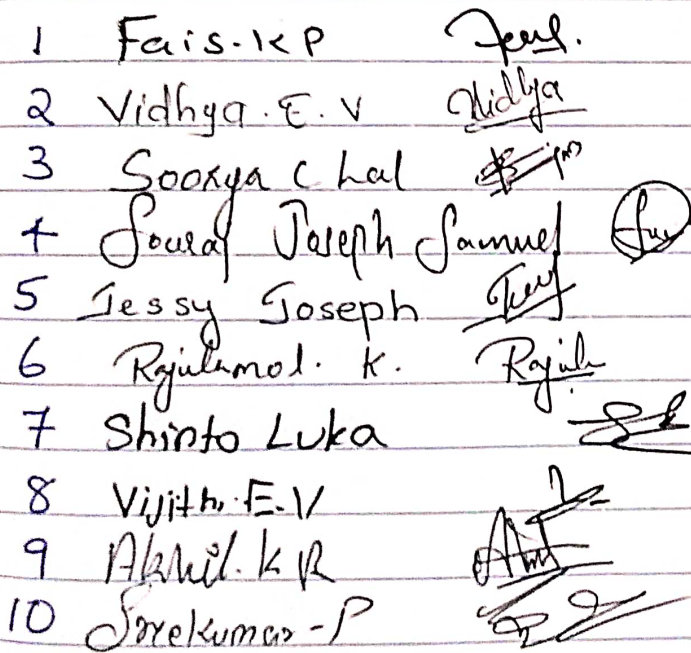 1 Fais. K P
2 Vidhya. E. V Vidhya
3 Sooxya C Lal
4 Sourav Joseph Samuel
5 Jessy Joseph
6 Rajulamol. K. Rajula
7 Shinto Luka
8 Vijith. E. V
9 Akhil. K R
10 Sreekumar - P